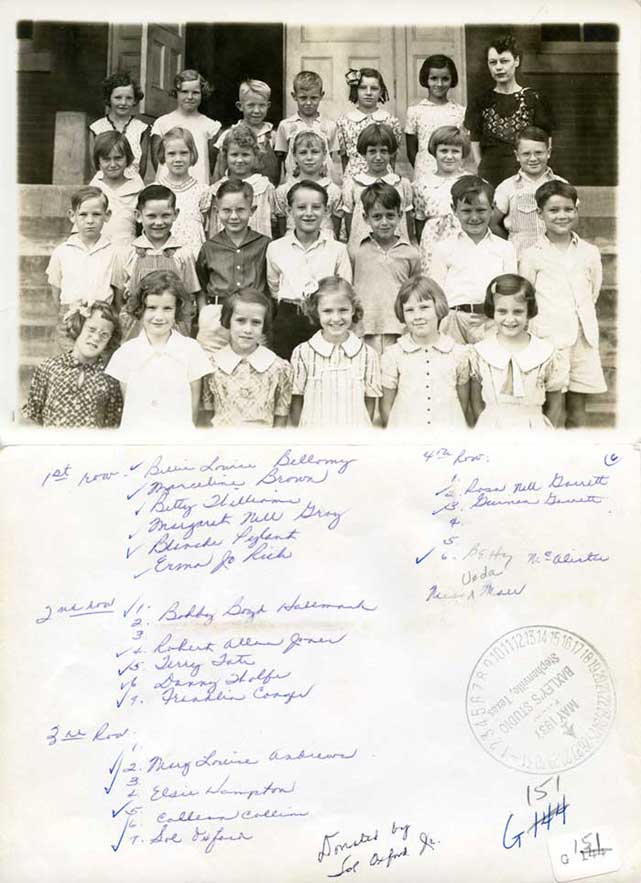 1st row. ✓ Billie Louise Bellomy
✓ Marceline Brown
✓ Betty Williams
✓ Margaret Nell Gray
✓ Blanche Pylant
✓ Erma Jo Rich
2nd row ✓ 1.
2. Bobby Boyd Hallmark
3
✓ 4. Robert Allan Jones
✓ 5. Terry Tate
✓ 6 Danny Wolfe
✓ 7. Franklin
3rd Row
1
✓ 2. Mary Louise Andrews
✓ 3
4. Elsie Hampton
✓ 5.
✓ 6. Colleen Collins
✓ 7. Sol Oxford
4th Row.
6
1.
✓ 2. Rosa Nell Garrett
✓ 3. Garrett
4
5
✓ 6. Betty McAlister
Veda
Miss Maer
1 2 3 4 5 6 7 8 9 10 11 12 13 14 15 16 17 18 19 20 21 22
BAXLEY'S STUDIO
Stephenville, Texas
MAY 1937
Donated by
Sol Oxford Jr.
151
G 144
151
G